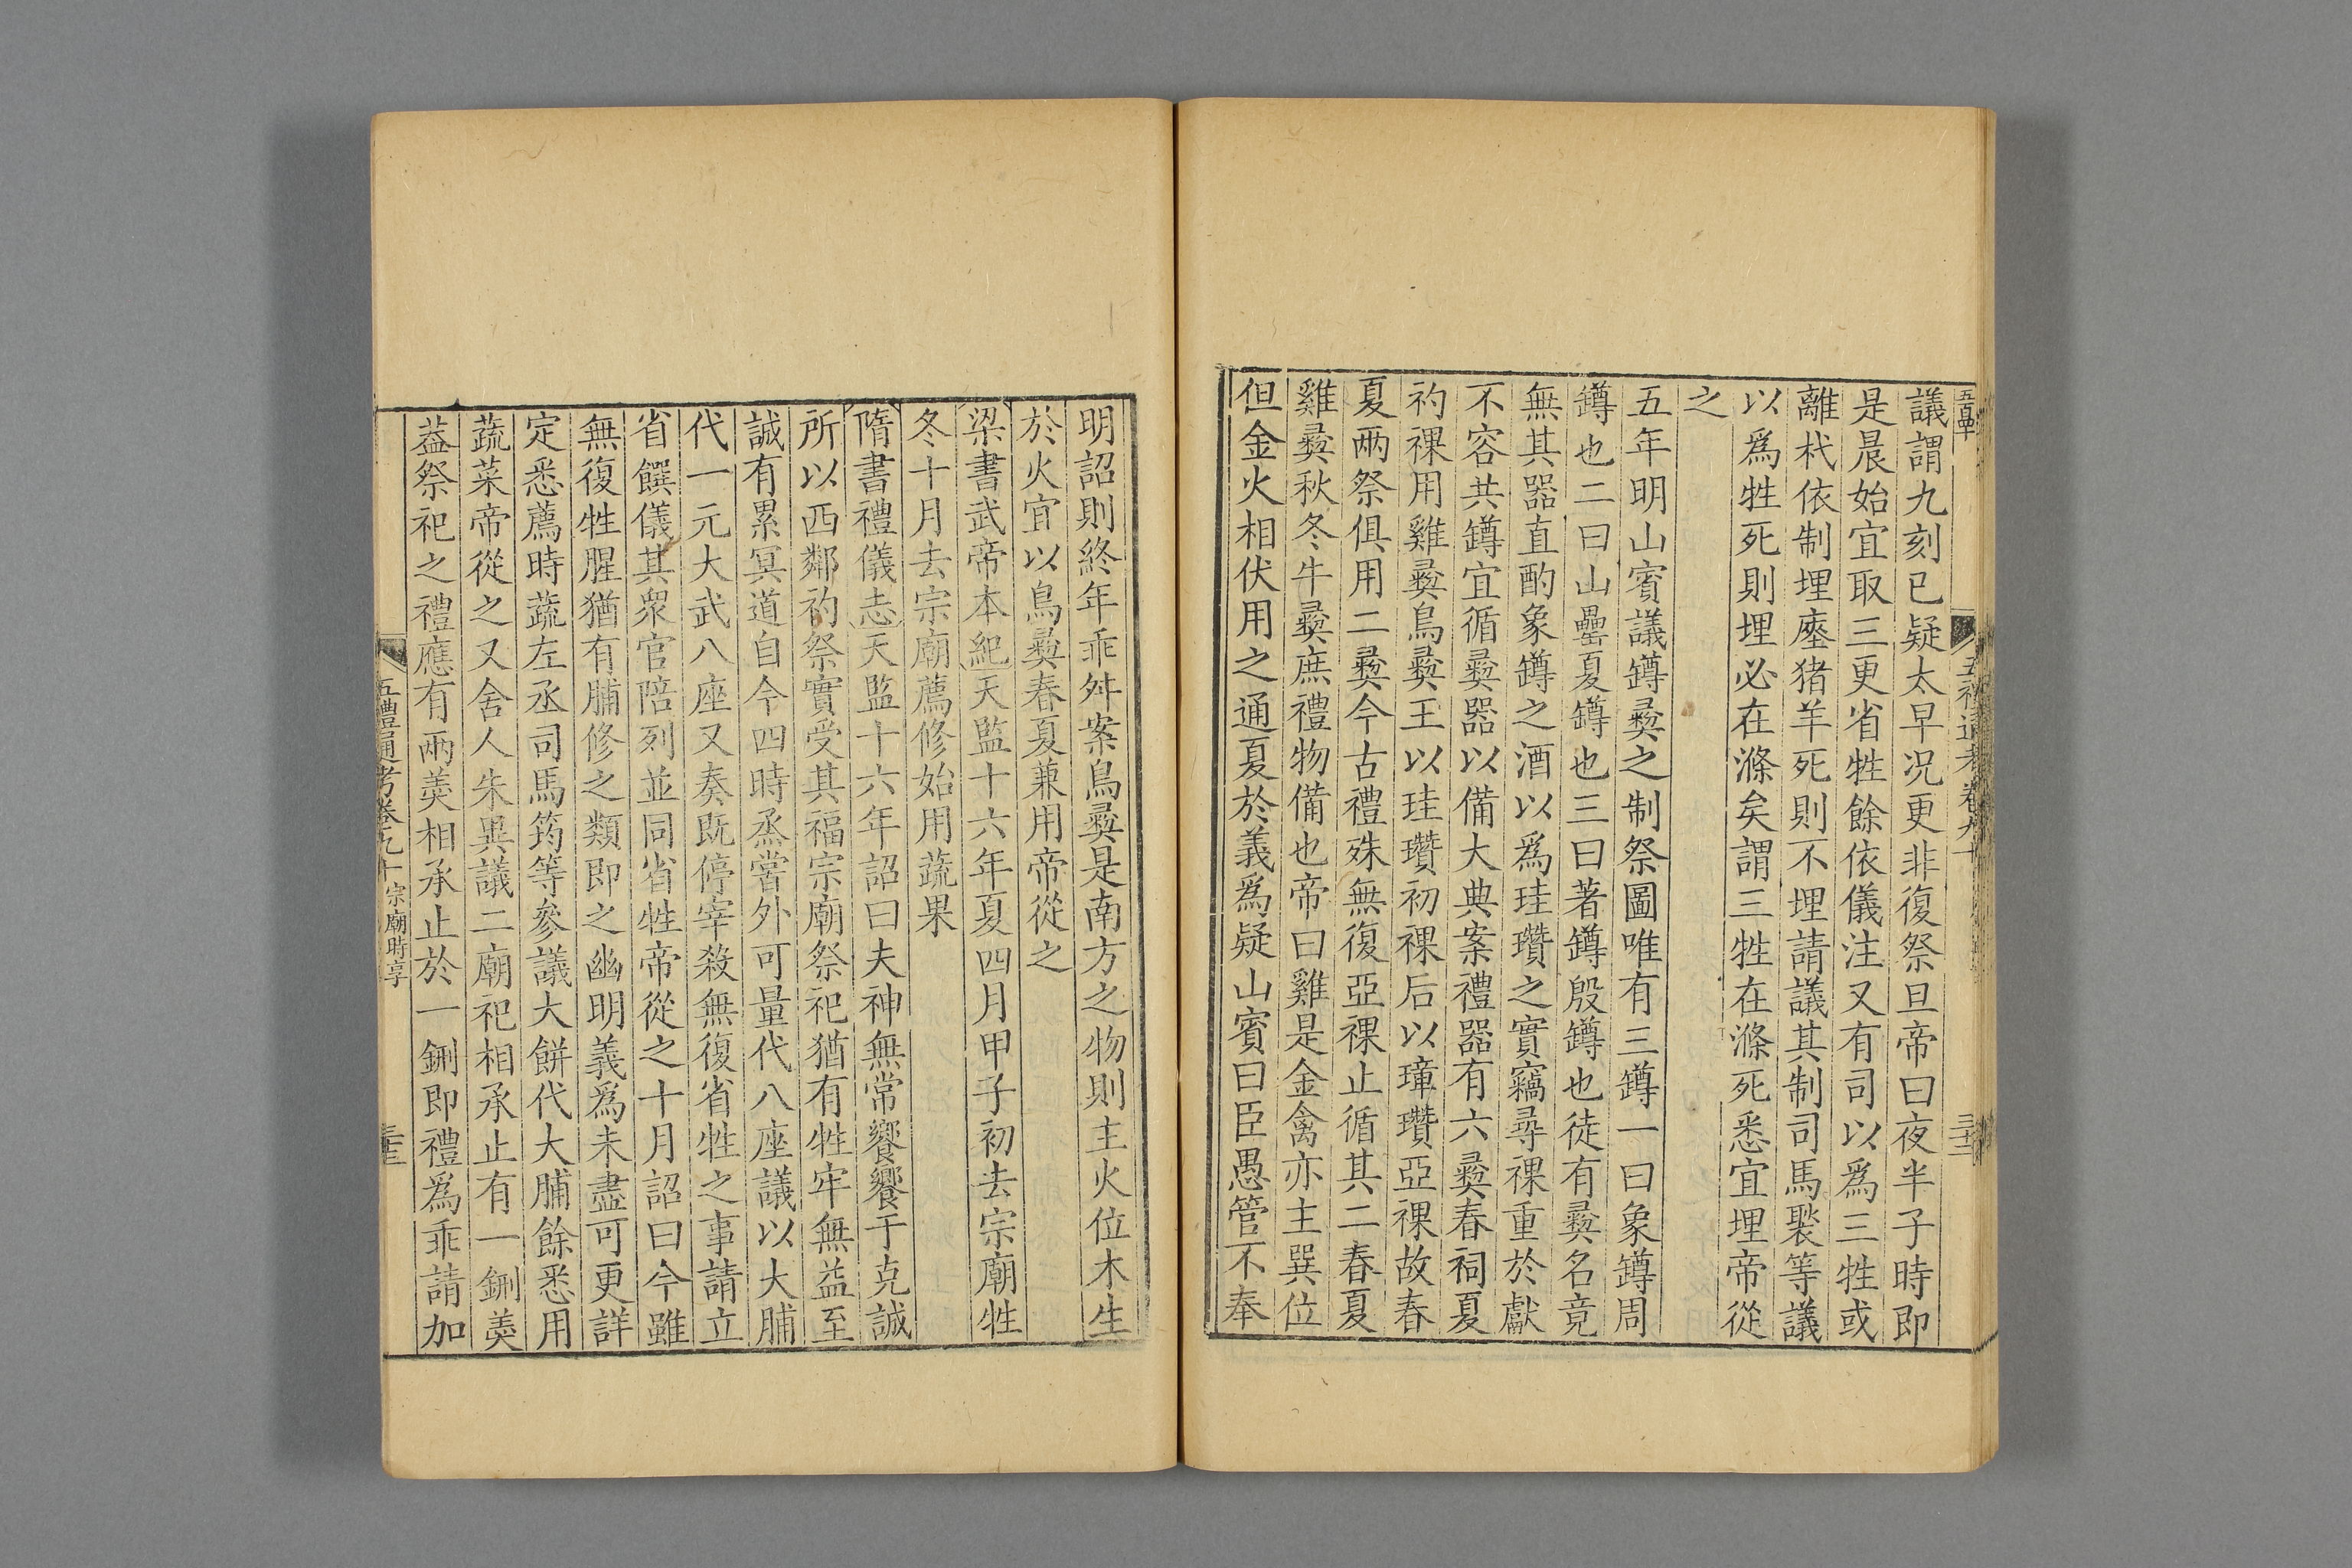 議謂九刻已疑太早况更非復祭旦帝曰夜半子時即
是晨始宜取三更省牲餘依儀注又有司以爲三牲或
離杙依制埋瘞猪羊死則不埋請議其制司馬褧等議
以爲牲死則埋必在滌矣謂三牲在滌死悉宜埋帝從
之
五年明山賓議罇彝之制祭圖唯有三罇一曰象罇周
罇也二曰山罍夏罇也三曰著罇殷罇也徒有彝名竟
無其器直酌象罇之酒以爲珪瓚之實竊尋祼重於獻
不容共罇宜循彝器以備大典案禮器有六彝春祠夏
礿祼用雞彝鳥彝王以珪瓚初祼后以璋瓚亞祼故春
夏兩祭俱用二彝今古禮殊無復亞祼止循其二春夏
雞彝秋冬牛彝庶禮物備也帝曰雞是金禽亦主巽位
但金火相伏用之通夏於義爲疑山賓曰臣愚管不奉
明詔則終年乖舛案鳥彝是南方之物則主火位木生
於火宜以鳥彝春夏兼用帝從之
梁書武帝本紀天監十六年夏四月甲子初去宗廟牲
冬十月去宗廟薦修始用蔬果
隋書禮儀志天監十六年詔曰夫神無常饗饗于克誠
所以西鄰礿祭實受其福宗廟祭祀猶有牲牢無益至
誠有累冥道自今四時烝嘗外可量代八座議以大脯
代一元大武八座又奏既停宰殺無復省牲之事請立
省饌儀其衆官陪列並同省牲帝從之十月詔曰今雖
無復牲腥猶有脯修之類即之幽明義爲未盡可更詳
定悉薦時蔬左丞司馬筠等參議大餅代大脯餘悉用
蔬菜帝從之又舍人朱异議二廟祀相承止有一鉶羹
葢祭祀之禮應有兩羹相承止於一鉶即禮爲乖請加
五禮通考卷九十 宗廟時享